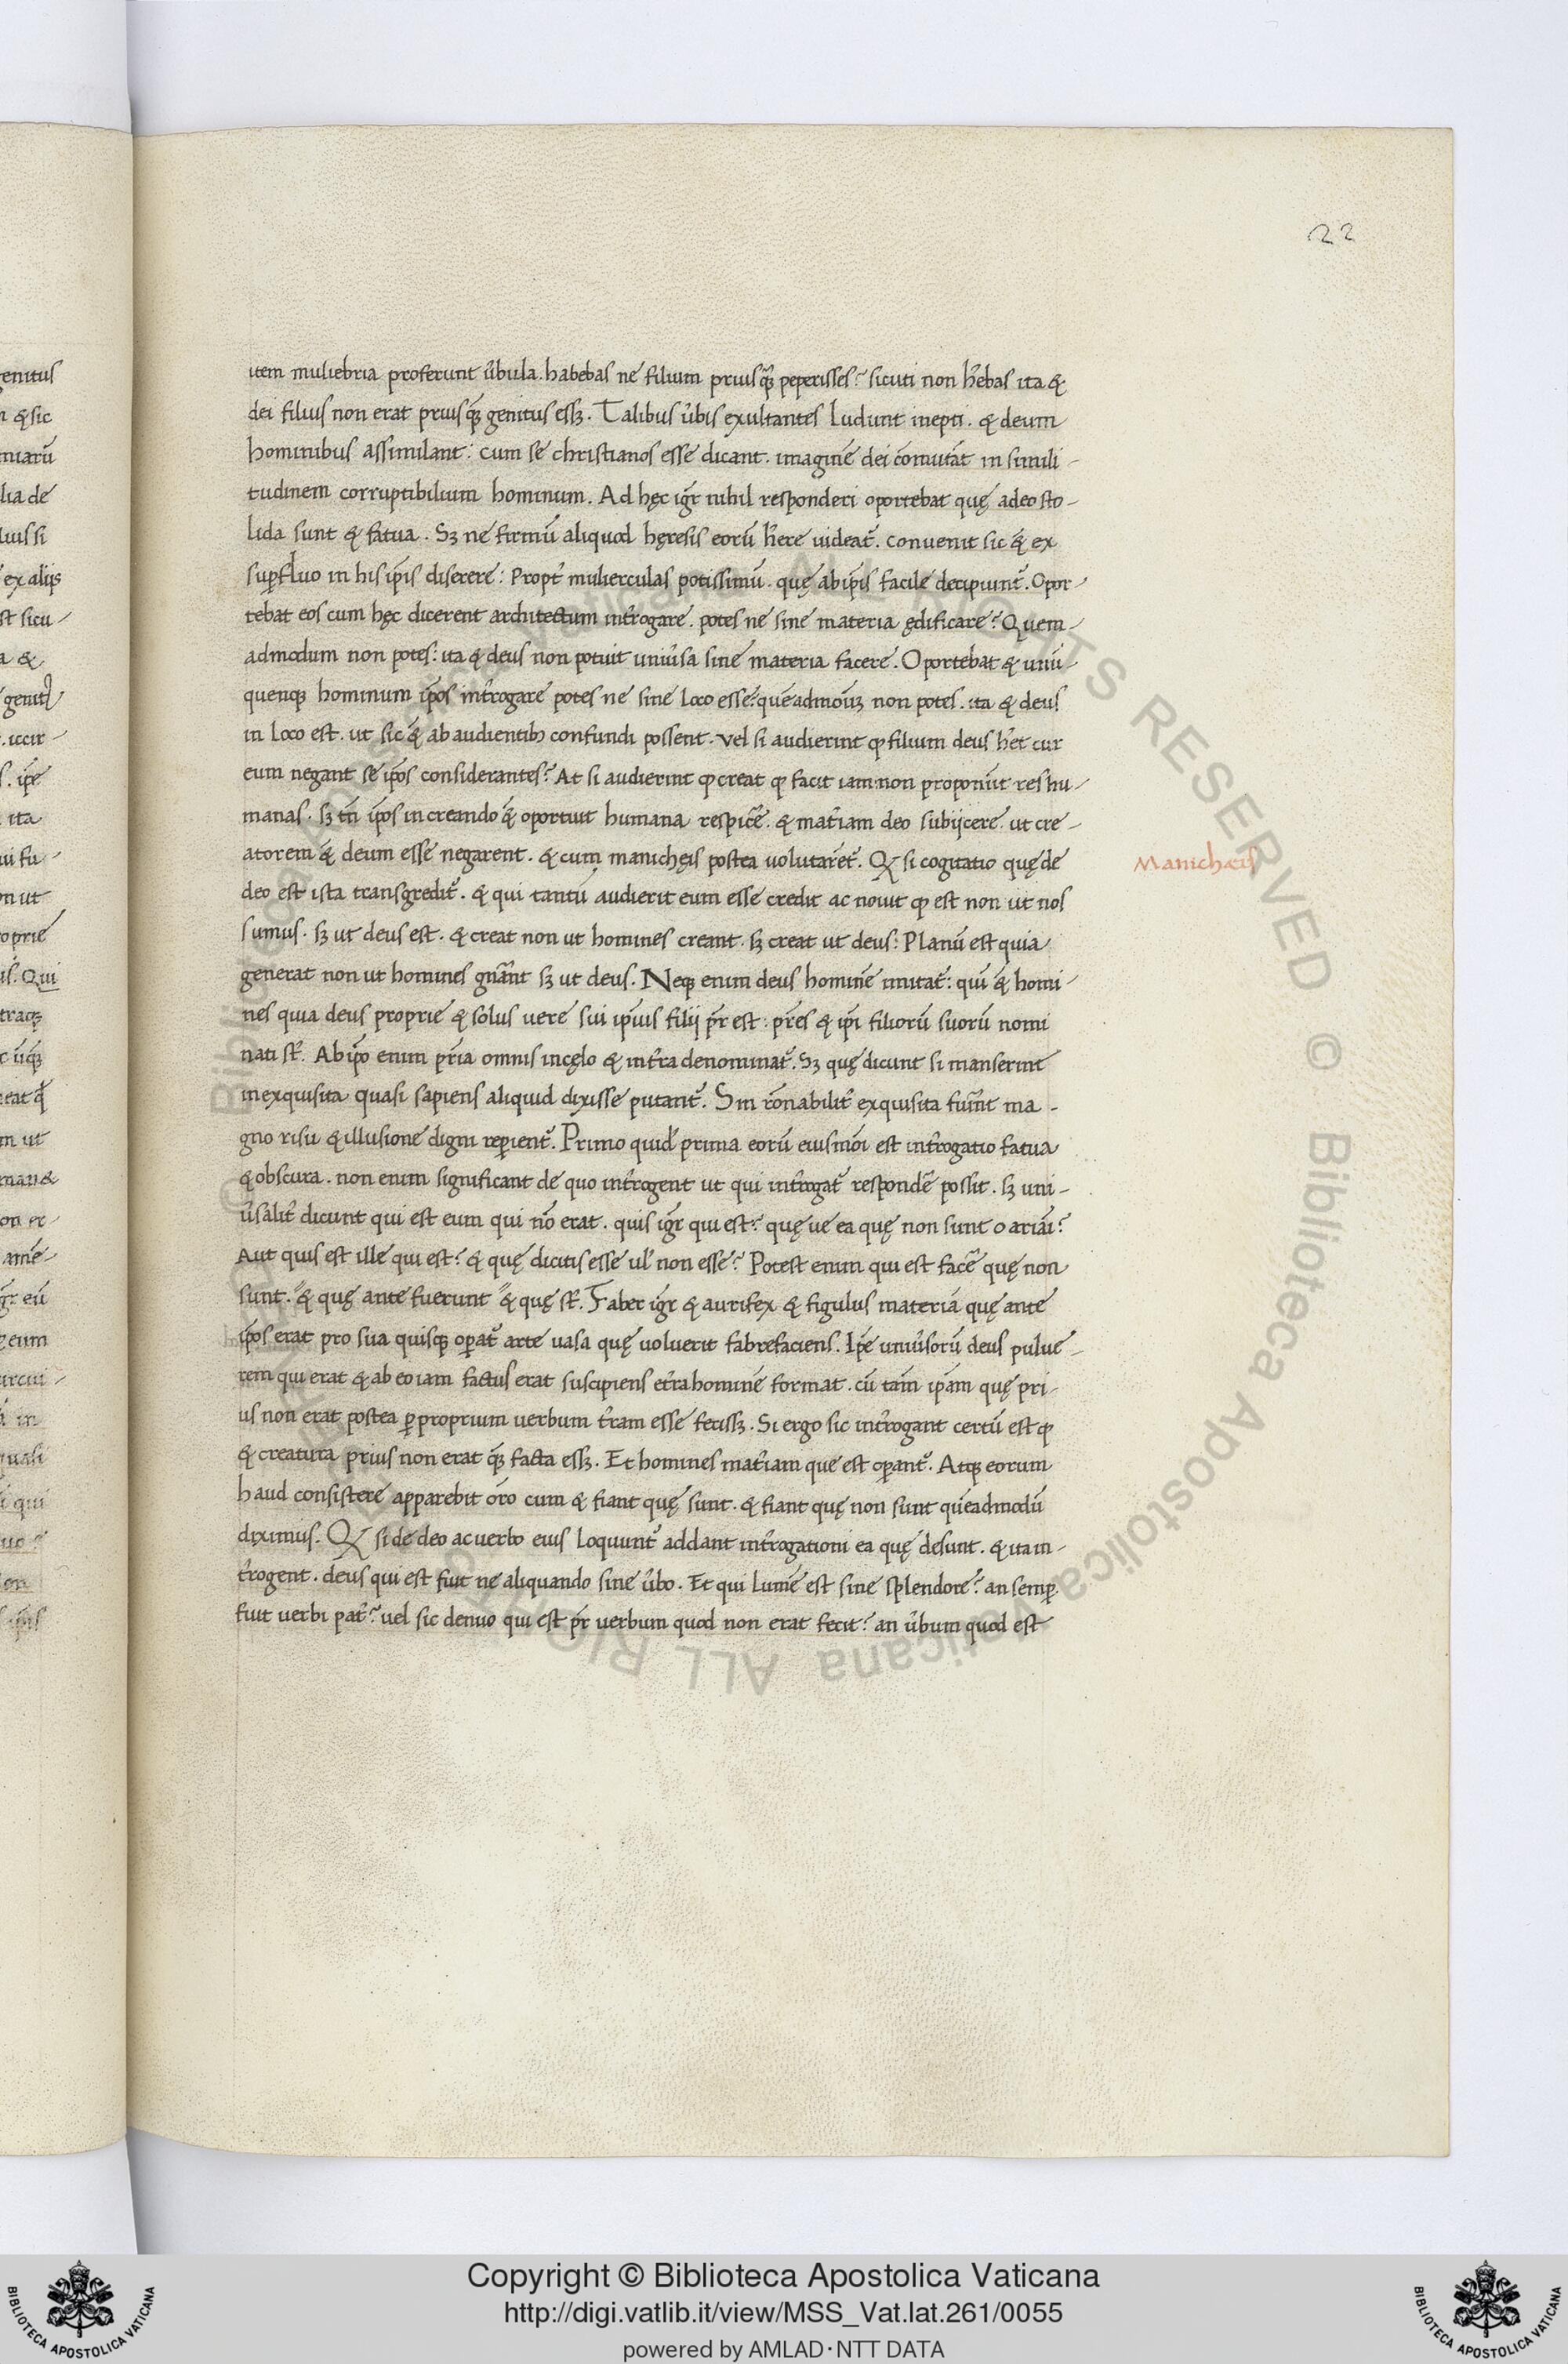 22
item muliebria proferunt ũbula. habebas ne filium priusq̃ȝ peperisses? sicuti non h̃ebas ita &
dei filius non erat priusq̃ȝ genitus essȝ. Talibus ũbis exultantes Ludunt inepti. & deum
hominibus assimilant: cum se christianos esse dicant. imaginẽ dei cõmutãt in simili-
tudinem corruptibilium hominum. Ad hęc igr̃ nihil responderi oportebat quę adeo sto-
lida sunt & fatua. Sȝ ne firmũ aliquod hęresis eorũ h̃ere uideat̃. convenit sic & ex
suꝑfluo in his ip̃is diserere: Propt̃ mulierculas potissimũ. quę ab ip̃is facile decipiunt̃. Opor-
tebat eos cum hęc dicerent architectum int̃rogare. potes ne sine materia ędificare? Quem-
admodum non potes: ita & deus non potuit uniũsa sine materia facere. Oportebat & unũ-
quenqȝ hominum ip̃os int̃rogare potes ne sine Loco esse? quẽadmoũȝ non potes. ita & deus
in Loco est. ut sic & ab audientibȝ confundi possent. vel si audierint ꝙ filium deus h̃et cur
eum negant se ip̃os considerantes? At si audierint ꝙ creat ꝙ facit iam non proponũt res hu-
manas. sȝ tñ ip̃os in creando & oportuit humana respicẽ. & mat̃iam deo subijcere. ut cre-
atorem & deum esse negarent. & cum manichęis postea volutarẽt̃. Qȝ si cogitatio quę de
Manichæis
deo est ista transgredit̃. & qui tantũ audierit eum esse credit ac novit ꝙ est non ut nos
sumus. sȝ ut deus est. & creat non ut homines creant. sȝ creat ut deus: Planũ est quia
generat non ut homines gñant sȝ ut deus. Neqȝ enim deus hominẽ imitat̃: qui & homi-
nes quia deus proprie & solus uere sui ip̃ius filij pr̃ est: pr̃es & ip̃i filiorũ suorũ nomi
nati st̃. Ab ip̃o enim pr̃ia omnis in cęlo & in t̃ra denominat̃. Sȝ quę dicunt si manserint
inexquisita quasi sapiens aliquid dixisse putant̃. Sin rõnabilit̃ exquisita fuĩnt ma-
gno risu & illusione digni reꝑient̃. Primo quid̃ prima eorũ eiusmõi est int̃rogatio fatua
& obscura. non enim significant de quo int̃rogent ut qui int̃rogat̃ respondẽ possit. sȝ uni-
ũsalit̃ dicunt qui est eum qui nõ erat. quis igr̃ qui est? quę ue ea quę non sunt o ariãi?
Aut quis est ille qui est? & quę dicitis esse ul̃ non esse? Potest enim qui est facẽ quę non
sunt. & quę ante fuerunt & quę st̃. Faber igr̃ & aurifex & figulus materiã quę ante
ip̃os erat pro sua quisqȝ oꝑat̃ arte uasa quę voluerit fabrefaciens. Ip̃e uniũsorũ deus pulve-
rem qui erat & ab eo iam factus erat suscipiens et̃ra hominẽ format. cũ tam̃ ip̃am quę pri-
us non erat postea ꝑ proprium uerbum t̃ram esse fecissȝ. Si ergo sic int̃rogant certũ est ꝙ
& creatura prius non erat q̃ȝ facta essȝ. Et homines mat̃iam que est oꝑant̃. Atqȝ eorum
haud consistere apparebit or̃o cum & fiant quę sunt. & fiant quę non sunt quẽadmodũ
diximus. Qȝ si de deo ac uerbo eius Loquunt̃ addant int̃rogationi ea quę desunt. & ita in-
t̃rogent. deus qui est fuit ne aliquando sine ũbo. Et qui Lumẽ est sine splendore? an semꝑ
fuit uerbi pat̃? uel sic denuo qui est pr̃ uerbum quod non erat fecit? an ũbum quod est
Copyright © Biblioteca Apostolica Vaticana
http://digi.vatlib.it/view/MSS_Vat.lat.261/0055
powered by AMLAD·NTT DATA